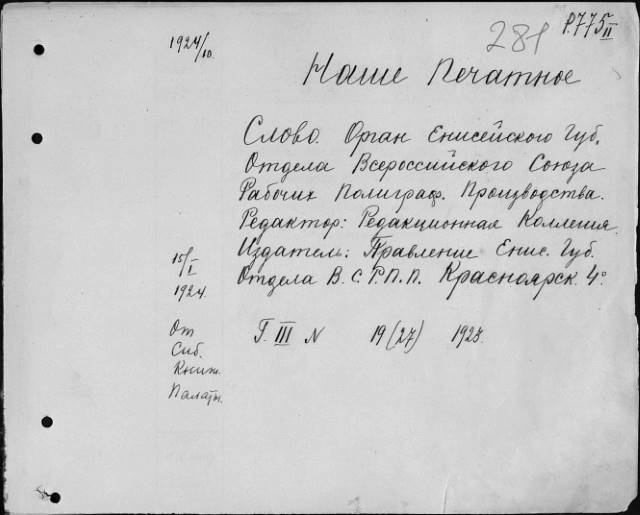 281 P.775 II
1924/10.
Наше Печатное
Слово. Орган Енисейского Губ.
Отдела Всероссийского Союза
Рабочих Полиграф. Производства.
Редактор: Редакционная Коллегия.
Издатель: Правление Енис. Губ.
Отдела В.С.Р.П.П. Красноярск. 4°
15/I
1924.
От
Сиб.
Книж.
Палаты.
Г. III N 19 (27) 1923.